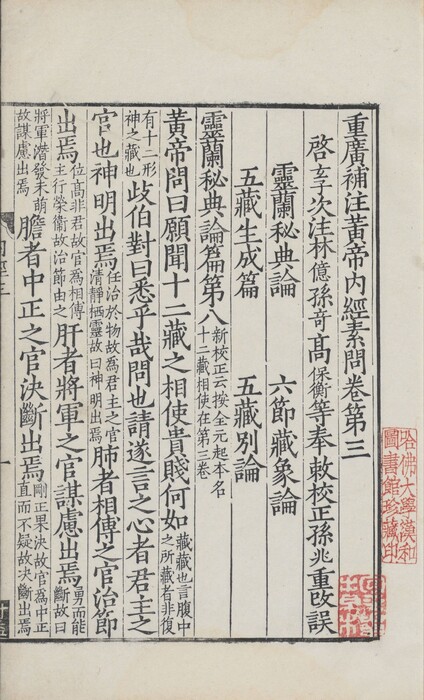 重廣補注黃帝內經素問卷第三
啓玄子次注林億孫奇高保衡等奉敕校正孫兆重改誤
靈蘭秘典論 六節藏象論
五藏生成篇 五藏別論
靈蘭秘典論篇第八 新校正云按全元起本名十二藏相使在第三卷
黃帝問曰願聞十二藏之相使貴賤何如 藏藏也言腹中之所藏者非復
有十二形神之藏也 歧伯對曰悉乎哉問也請遂言之心者君主之
官也神明出焉 任治於物故為君主之官清靜栖靈故曰神明出焉 肺者相傅之官治節
出焉 位高非君故官為相傅主行榮衛故治節由之 肝者將軍之官謀慮出焉 勇而能斷故曰
將軍潛發未萌故謀慮出焉 膽者中正之官決斷出焉 剛正果決故官為中正直而不疑故決斷出焉
哈佛大學漢和
圖書館珍藏印